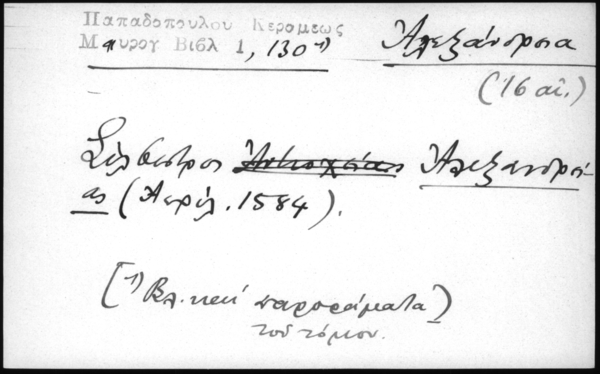 Παπαδοπουλου Κεραμεως
Μαυρογ Βιβλ 1, 130¹⁾
Ἀλεξάνδρεια
(16 αἰ.)
Σίλβεστρος Ἀντιοχείας Ἀλεξανδρεί-
ας (Ἀπρίλ. 1584).
[¹⁾ Βλ. καὶ παροράματα)
τοῦ τόμου.